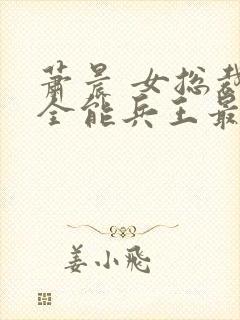 萧晨 女总裁
全能兵王最
姜小飛